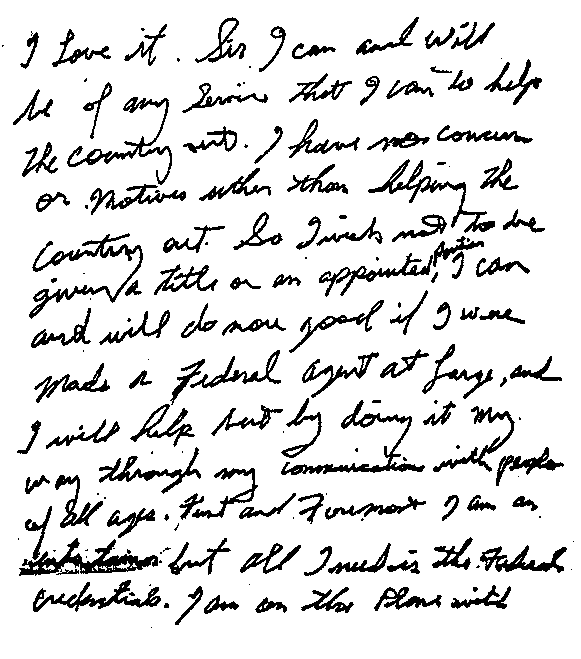 I Love it. Sir I can and will
be of any Service that I can to help
the country out. I have no concern
or Motives other than helping the
country out. So I wish not to be
given a title or an appointed position, I can
and will do more good if I were
made a Federal Agent at Large, and
I will help but by doing it my
way through my communications with people
of all ages. First and Foremost I am an
entertainer but all I need is the Federal
credentials. I am on the Plane with